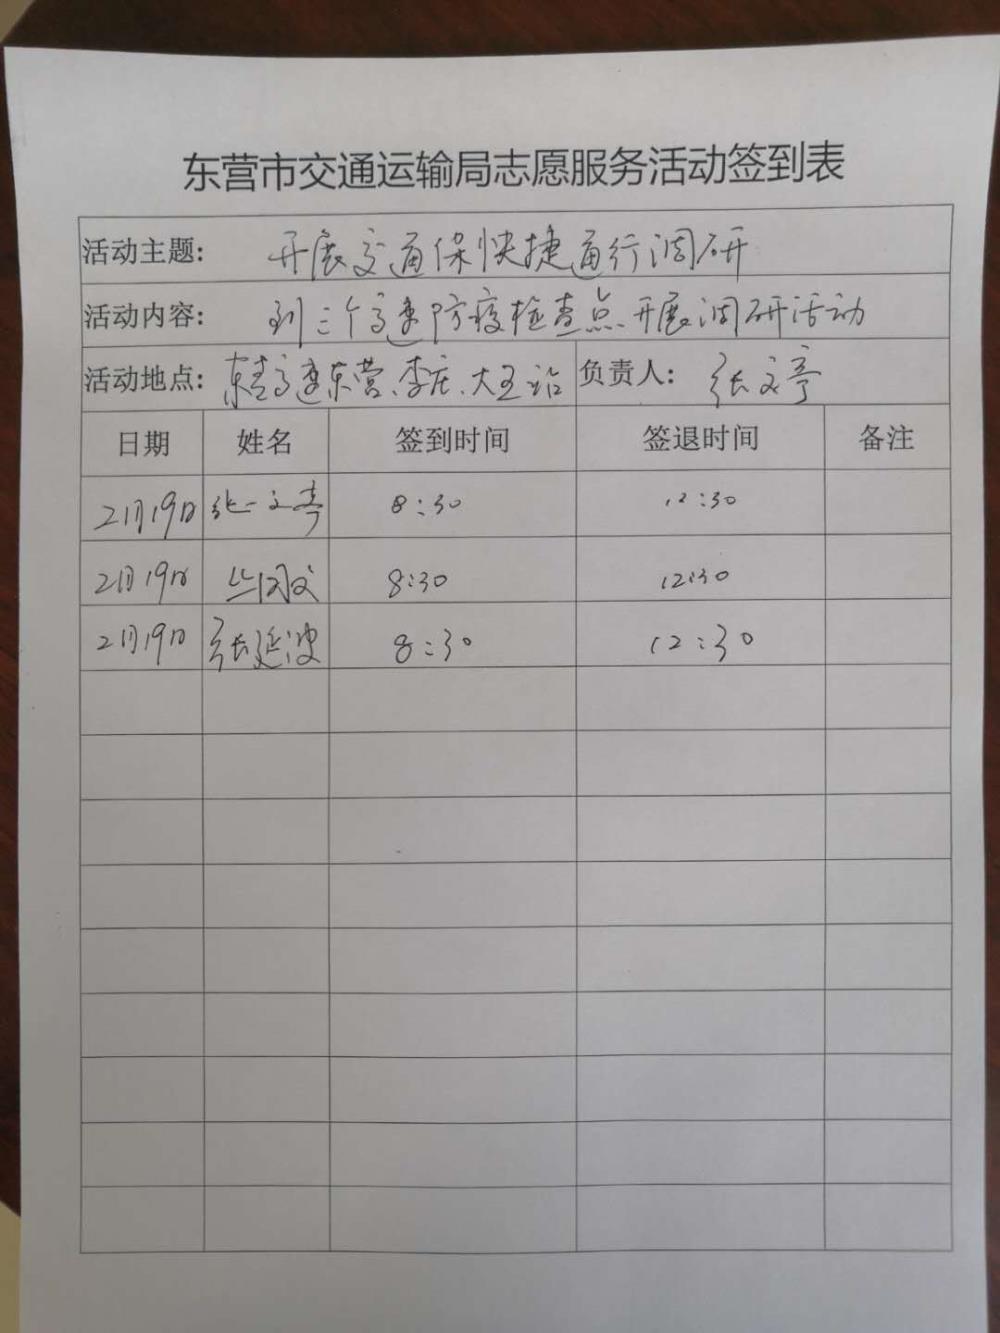 东营市交通运输局志愿服务活动签到表
活动主题: 开展交通保快捷通行调研
活动内容: 到三个高速防疫检查点开展调研活动
活动地点: 东青高速东营、李庄、大王站 负责人: 张文亭
日期 姓名 签到时间 签退时间 备注
2月19日 张文亭 8:30 12:30
2月19日 8:30 12:30
2月19日 张延波 8:30 12:30